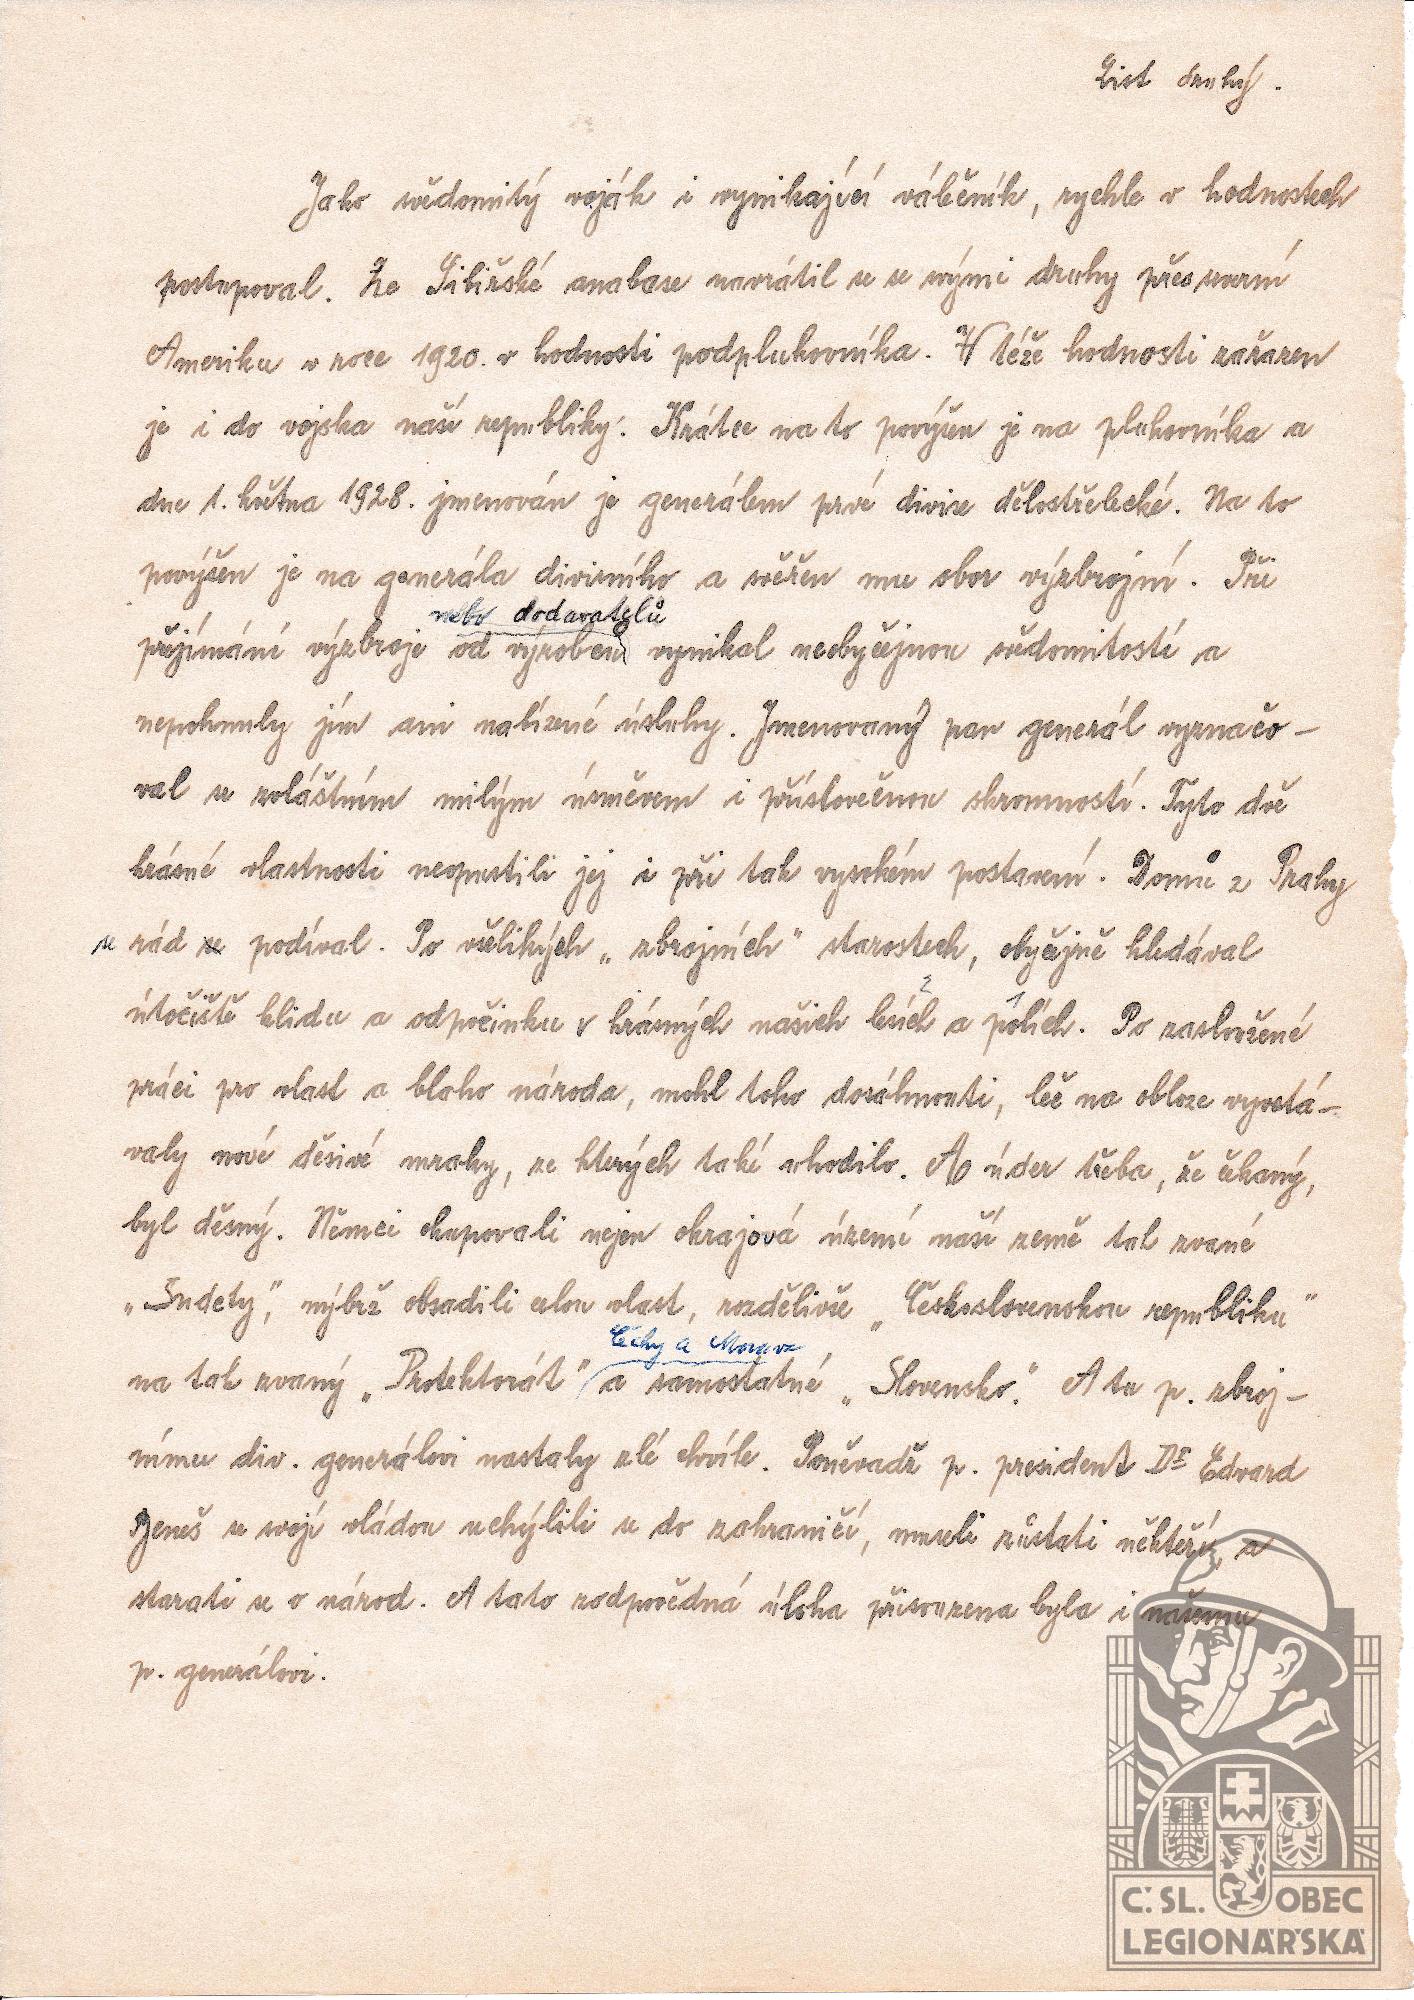 List druhý.
Jako svědomitý voják i vynikající válečník, rychle v hodnostech
postupoval. Ze Sibiřské anabase navrátil se se svými druhy přes severní
Ameriku v roce 1920. v hodnosti podplukovníka. V téže hodnosti zařazen
je i do vojska naší republiky. Krátce na to povýšen je na plukovníka a
dne 1. května 1928. jmenován je generálem prvé divise dělostřelecké. Na to
povýšen je na generála divisního a svěřen mu obor výzbrojní. Při
nebo dodavatelů
přejímání výzbroje od výroben vynikal neobyčejnou svědomitostí a
nepohnuly jím ani nabízené úsluhy. Jmenovaný pan generál vyznačo-
val se zvláštním milým úsměvem i příslovečnou skromností. Tyto dvě
krásné vlastnosti neopustili jej i při tak vysokém postavení. Domů z Prahy
se rád se podíval. Po všelikých „zbrojních" starostech, obyčejně hledával
2 1
útočiště klidu a odpočinku v krásných našich lesích a polích. Po zasloužené
práci pro vlast a blaho národa, mohl toho dosáhnouti, leč na obloze vyvstá-
valy nové děsivé mraky, ze kterých také uhodilo. A úder třeba, že čekaný,
byl děsný. Němci okupovali nejen okrajová území naší země tak zvané
„Sudety", nýbrž obsadili celou vlast, rozdělivše „Československou republiku"
Čechy a Morava
na tak zvaný „Protektorát" a samostatné „Slovensko". A tu p. zbroj-
nímu div. generálovi nastaly zlé chvíle. Poněvadž p. president Dr Edvard
Beneš se svojí vládou uchýlili se do zahraničí, museli zůstati někteří, a
starati se o národ. A tato zodpovědná úloha přisouzena byla i našemu
p. generálovi.
Č. SL. OBEC
LEGIONÁŘSKÁ